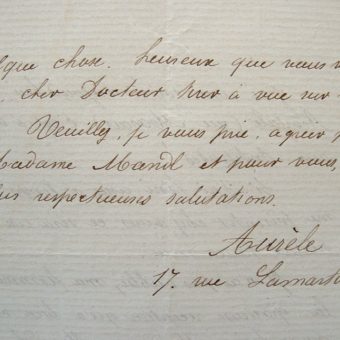 lque chose. heureux que vous
, cher Docteur à vue sur
Veuillez, je vous prie, agréer
Madame Mandl et pour vous,
lus respectueuses salutations.
Aurèle
17. rue Lamart